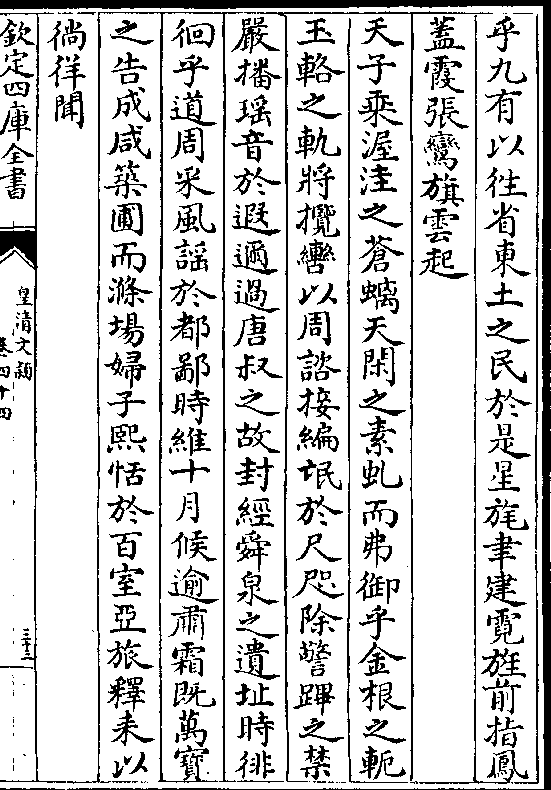 乎九有以徃省東土之民於是星旄聿建霓旌前指鳳
蓋霞張鸞旗雲起
天子乗渥洼之蒼螭天閑之素虬而弗御乎金根之軛
玉輅之軌將攬轡以周諮接編氓於尺咫除警蹕之禁
嚴播瑶音於遐邇過唐叔之故封經舜泉之遺址時徘
徊乎道周采風謡於都鄙時維十月候逾肅霜既萬寳
之告成咸築圃而滌場婦子熙恬於百室亞旅釋耒以
徜徉聞
欽定四庫全書
皇清文穎
卷四十四
三十二